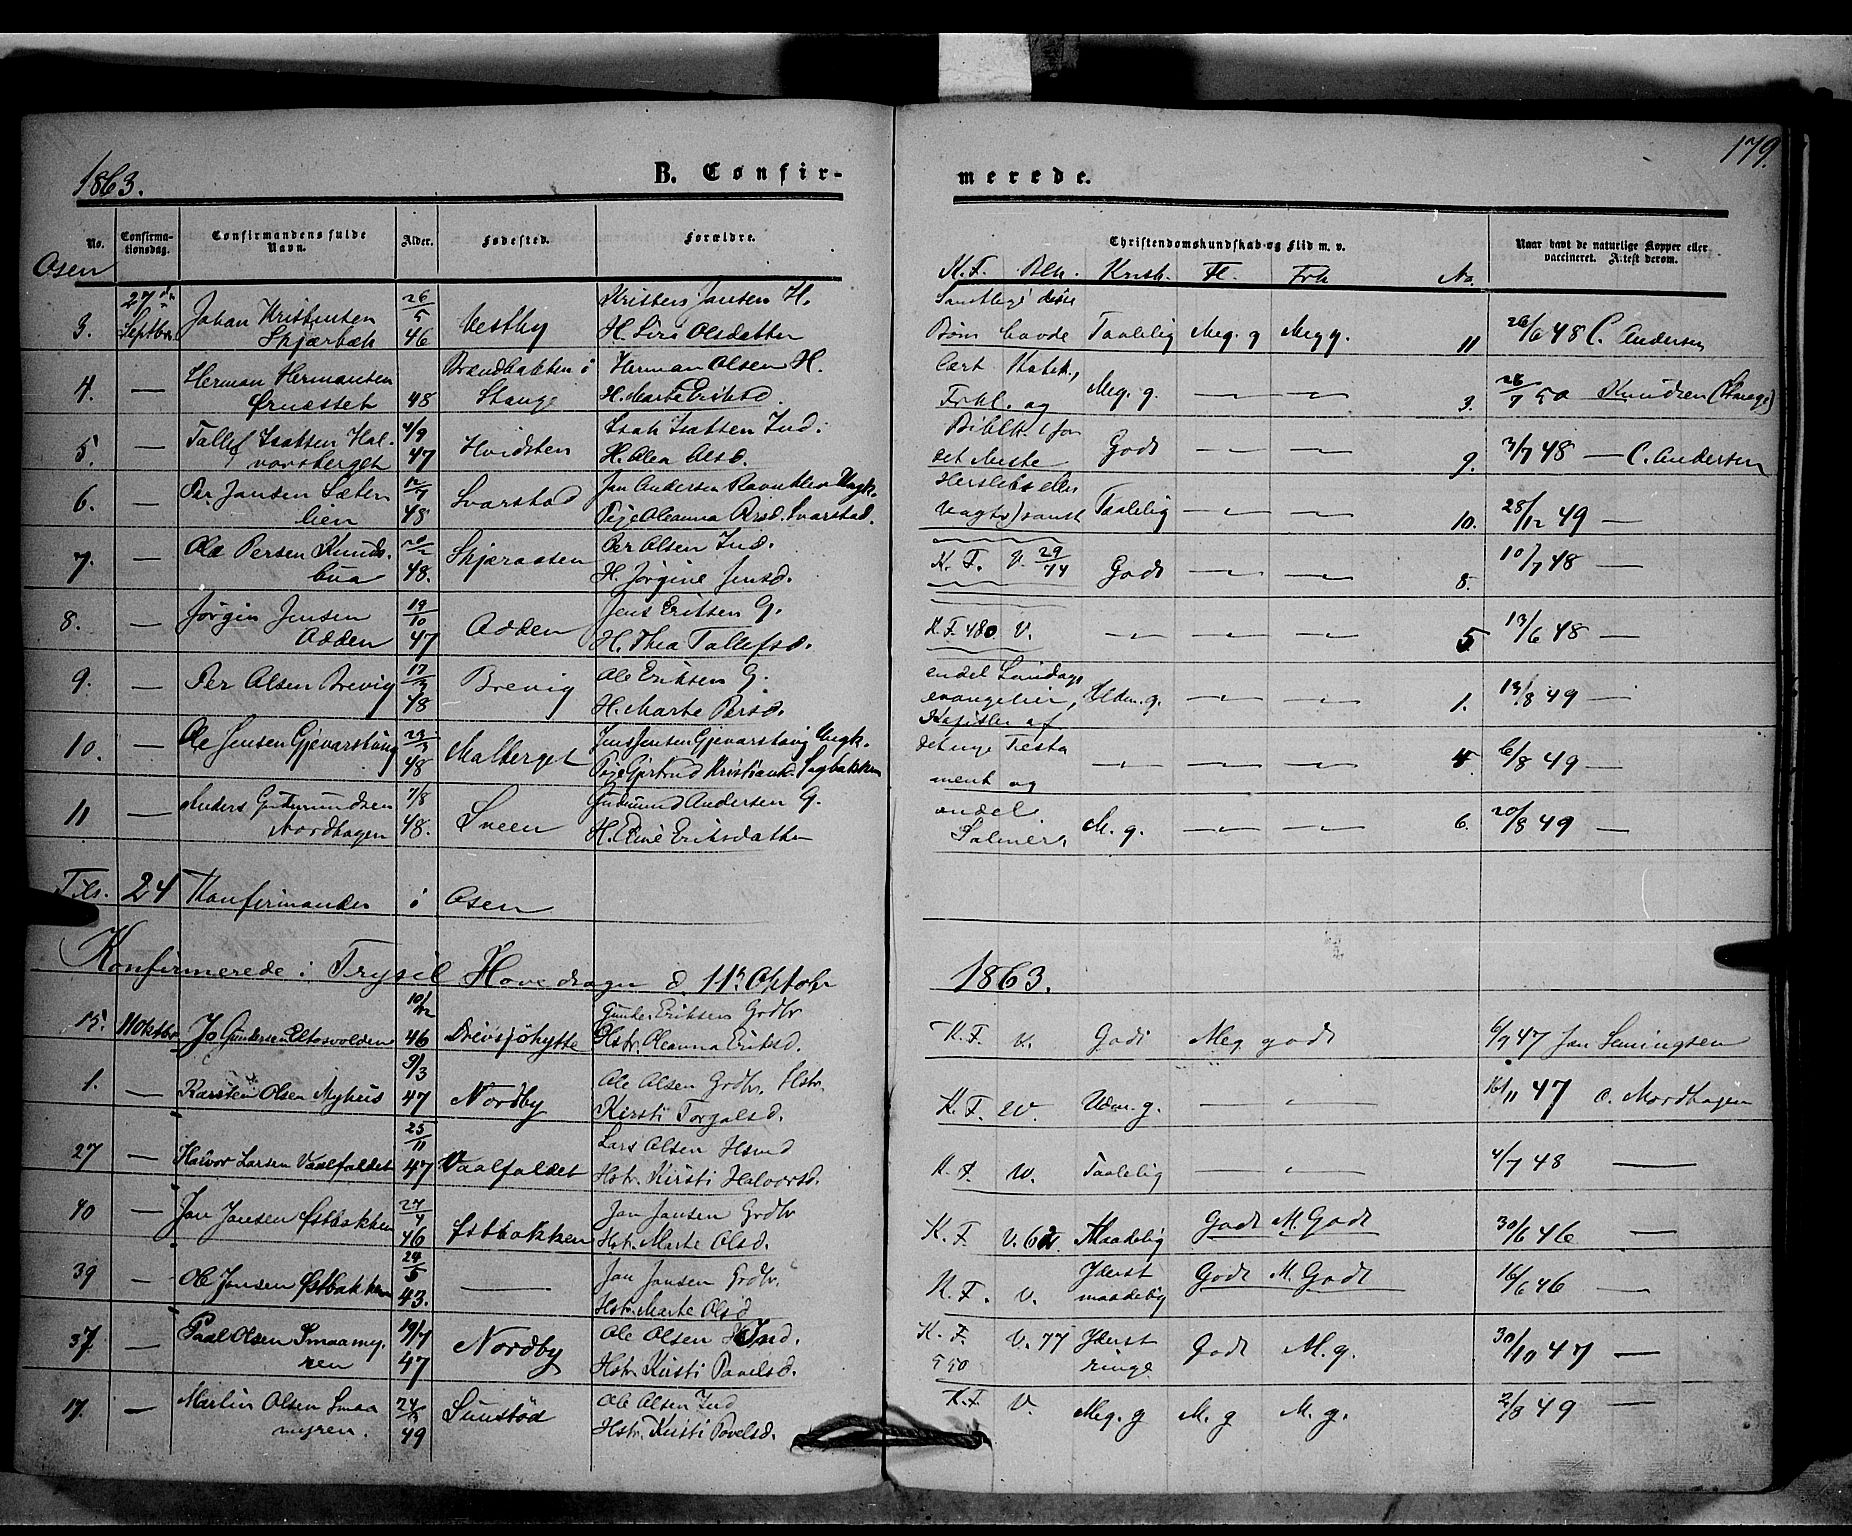 1863.
B. Confir-
merede.
179.
No.
Confirma-
tionsdag.
Confirmandens fulde
Navn.
Alder.
Fødested.
Forældre.
Christendomskundskab og Flid m. v.
Naar havt de naturlige Kopper eller
vaccineret. Attest derom.
Osen
K. F. Blk. Krisk. Fl. Frh No.
3. 27de Septbr Johan Kristensen Skjærbæk 26/5 46 Vestby Kristen Jansen H. H. Siri Olsdatter
Samtlige disse Børn havde Taalelig Meg. g Meg g. 11 26/6 48 C. Andersen
4. — Herman Hermansen Ørnæsset 48 Brændbakken i Stange Herman Olsen H. H. Marte Eriksd.
Lært Katek., Forkl. og Meg. g. — — 3. 26/7 50 Knudsen (Stange)
5. — Tallef Isaksen Halvorsberget 4/9 47 Hvidsten Isak Isaksen Ind. H. Olea Olsd.
Biblh. (for det Meste Godt — — 9. 3/7 48 — C. Andersen
6. — Per Jansen Sæterlien 12/7 48 Svarstad Jan Andersen Ungk. Pige Oleanna Svarstad.
Herslebs eller Vogts) samt Taalelig — — 10. 28/12 49 —
7. — Ole Persen Knudsbua 48. Skjæraasen Per Olsen Ind. H. Jørgine Jensd.
K. F. V. 29/74 Godt — — 8. 10/7 48 —
8. — Jørgen Jensen Odden 19/10 47 Odden Jens Eriksen G. H. Thea Tallefsd.
K F. 480 V. — — — 5 13/6 48 —
9. — Per Olsen Brevig 17/3 48 Brevig Ole Eriksen G. H. Marte Persd.
endel Søndags evangelier, Udm. g. — — 1. 13/8 49 —
10. — Ole Jensen Gjevarstuug 23/3 48 Malberget Jens Jensen Gjevarstuug Ungk. Pige Gjertrud Kristiansd. Sagbakken
Kapitler af det nye Testament og — — — 4. 6/8 49 —
11 — Anders Gudmundsen Nordhagen 7/8 48. Sveen Gudmund Andersen G. H. Eline Eriksdatter
endel Salmer. M. g. — — 6. 20/8 49 —
Tils. 24 Konfirmander i Osen
Konfirmerede i Trysil Hovedsogn d. 11te Oktobr 1863.
15. 11 Oktbr Jo Gundersen Eltasvolden 10/12 46 Drevsjøhytte Gunder Eriksen Grdbr Hstr. Oleanna Eriksd.
K. F. V. Godt Meg godt 6/7 47 Jan Semingsen
1. — Karsten Olsen Nyhus 9/3 47 Nordby Ole Olsen Grdbr. Hstr. Kirsti Torgalsd.
K. F. W. Udm. g. — — 16/11 47 O. Nordhagen
27 — Halvor Larsen Vaalfaldet 25/11 47 Vaalfaldet Lars Olsen Hsmd Hstr. Kirsti Halvorsd.
K. F. W. Taalelig — — 4/7 48 —
40 — Jan Jansen Østbakken 27/4 46 Østbakken Jan Jansen Grdbr Hstr. Marte Olsd.
K. F. V. Maadelig Godt M. Godt 30/6 46 —
39 — Ole Jansen Østbakken 24/5 43. — Jan Jansen Grdbr. Hstr. Marte Olsd
K. F. V. Yderst maadelig Godt M. Godt 16/6 46 —
37. — Paal Olsen Smaamyren 19/7 47 Nordby Ole Olsen Ind. Hstr. Kirsti Pavelsd.
K. F. 550 V. 77 Yderst ringe Godt M. g. 30/10 47 —
17. — Martin Olsen Smaamyren. 24/5 49 Sunstød Ole Olsen Ind Hstr. Kirsti Pavelsd.
K. F. V. Meg. g M. g M. g. 2/8 49 —